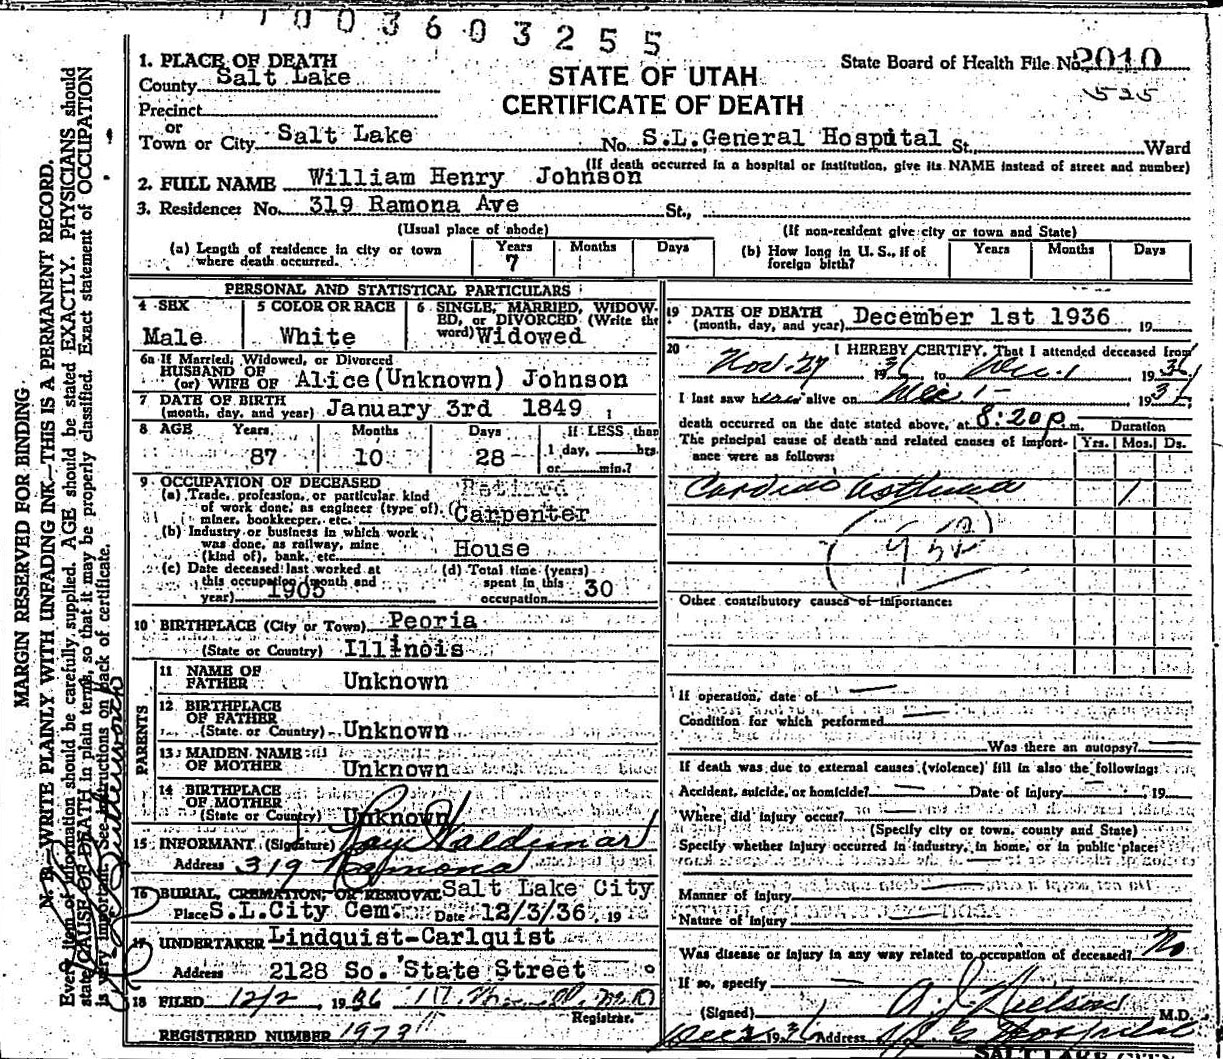 1003603255
State Board of Health File No. 2010
525
STATE OF UTAH
CERTIFICATE OF DEATH
1. PLACE OF DEATH
County Salt Lake
Precinct
or
Town or City Salt Lake No. S.L.General Hospital St., Ward
(If death occurred in a hospital or institution, give its NAME instead of street and number)
2. FULL NAME William Henry Johnson
3. Residence: No. 319 Ramona Ave St.,
(Usual place of abode) (If non-resident give city or town and State)
(a) Length of residence in city or town where death occurred. Years 7 Months Days
(b) How long in U. S., if of foreign birth? Years Months Days
PERSONAL AND STATISTICAL PARTICULARS
4 SEX Male
5 COLOR OR RACE White
6 SINGLE, MARRIED, WIDOWED, or DIVORCED (Write the word) Widowed
6a If Married, Widowed, or Divorced
HUSBAND OF
(or) WIFE OF Alice (Unknown) Johnson
7 DATE OF BIRTH
(month, day, and year) January 3rd 1849
8 AGE Years 87 Months 10 Days 28 If LESS than 1 day, hrs. or min.?
9 OCCUPATION OF DECEASED
(a) Trade, profession, or particular kind
of work done, as engineer (type of),
miner, bookkeeper, etc. Retired Carpenter
(b) Industry or business in which work
was done, as railway, mine
(kind of), bank, etc. House
(c) Date deceased last worked at
this occupation (month and
year) 1905
(d) Total time (years)
spent in this
occupation 30
10 BIRTHPLACE (City or Town) Peoria
(State or Country) Illinois
PARENTS
11 NAME OF
FATHER Unknown
12 BIRTHPLACE
OF FATHER
(State or Country) Unknown
13 MAIDEN NAME
OF MOTHER Unknown
14 BIRTHPLACE
OF MOTHER
(State or Country) Unknown
15 INFORMANT (Signature) Ray Haldeman
Address 319 Ramona
16 BURIAL, CREMATION, OR REMOVAL Salt Lake City
Place S.L.City Cem. Date 12/3/36, 19
17 UNDERTAKER Lindquist-Carlquist
Address 2128 So. State Street
18 FILED 12/2, 1936 M.D.
Registrar.
REGISTERED NUMBER 1973
19 DATE OF DEATH
(month, day, and year) December 1st 1936, 19
20 I HEREBY CERTIFY, That I attended deceased from
Nov. 27 1936 to Dec. 1 1936
I last saw h alive on Dec 1 - 1936
death occurred on the date stated above, at 8:20 p. m. Duration
The principal cause of death and related causes of importance were as follows: Yrs. Mos. Ds.
Cardiac asthma 1
Other contributory causes of importance:
If operation, date of
Condition for which performed
Was there an autopsy?
If death was due to external causes (violence) fill in also the following:
Accident, suicide, or homicide? Date of Injury 19
Where did injury occur?
(Specify city or town, county and State)
Specify whether injury occurred in industry, in home, or in public place:
Manner of Injury
Nature of Injury
Was disease or injury in any way related to occupation of deceased? No
If so, specify
(Signed) A. J. Nielson M.D.
Dec 2 1936 Address S. L. G. Hospital
SALT LAKE CITY
MARGIN RESERVED FOR BINDING.
N. B.—WRITE PLAINLY WITH UNFADING INK—THIS IS A PERMANENT RECORD.
Every item of information should be carefully supplied. AGE should be stated EXACTLY. PHYSICIANS should
state CAUSE OF DEATH in plain terms, so that it may be properly classified. Exact statement of OCCUPATION
is very important. See instructions on back of certificate.